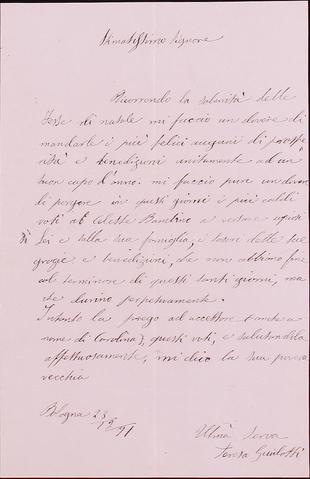 Stimatissimo Signore
Ricorrendo la solenità delle
feste di natale mi faccio un dovere di
mandarle i più felici auguri di prosspe
rità e benedizioni unitamente ad un
buon capo d'anno: mi faccio pure un dovere
di porgere in questi giorni i più caldi
voti al Celeste Bambino a versare sopra
di Lei e sulla sua famiglia, i tesori delle sue
grazie e benedizioni, che non abbino fine
col terminare di questi santi giorni, ma
che durino perpetuamente.
Intanto la prego ad accettare (anche a
nome di Carolina), questi voti, e salutandola
affettuosamente, mi dico la sua povera
vecchia
Bologna 23/12/91
Ulma Serva
Teresa